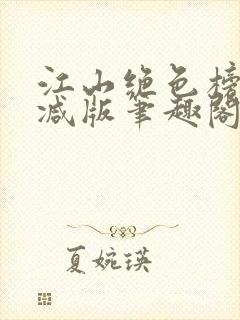 江山绝色榜
减版笔趣阁
夏婉瑛